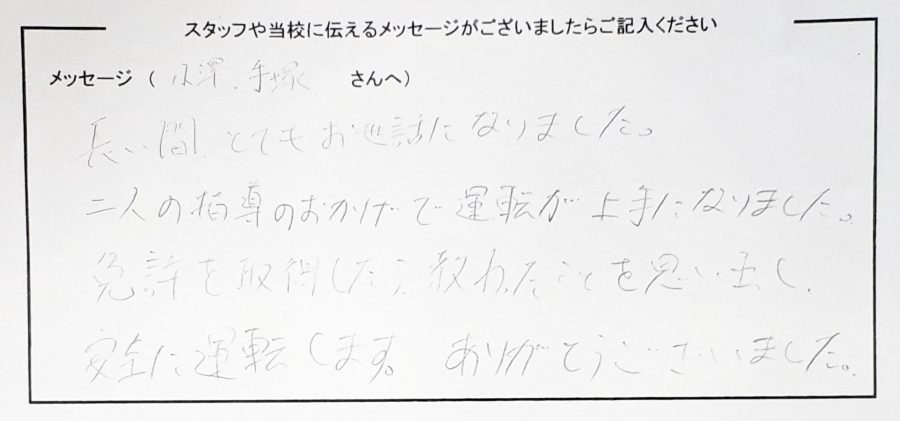 スタッフや当校に伝えるメッセージがございましたらご記入ください
メッセージ ( 水澤、手塚 さんへ)
長い間、とてもお世話になりました。
二人の指導のおかげで運転が上手になりました。
免許を取得したら、教わったことを思い出し、
安全に運転します。 ありがとうございました。